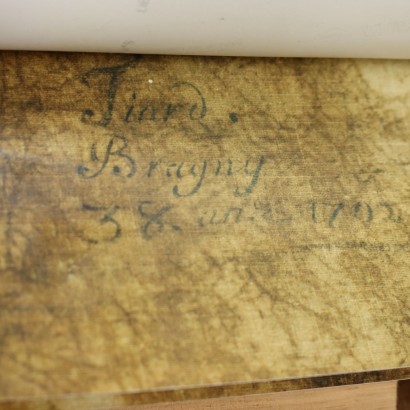 Tiard.
Bragny
38. ans. 1702